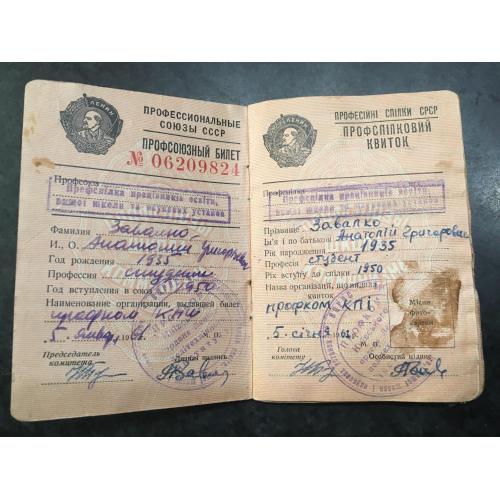 ЛЕНИН
ПРОФЕССИОНАЛЬНЫЕ
СОЮЗЫ СССР
ПРОФСОЮЗНЫЙ БИЛЕТ
№ 06209824
Профсоюз
Профспілка працівників освіти,
вищої школи та наукових установ
Фамилия Завалко
И., О. Анатолий Григорьевич
Год рождения 1935
Профессия студент
Год вступления в союз 1950
Наименование организации, выдавшей билет
профком КПИ
5 января 1961 г.
М. П.
Председатель
комитета
Личная подпись
ПРОФЕСІЙНІ СПІЛКИ СРСР
ПРОФСПІЛКОВИЙ
КВИТОК
Профспілка
Профспілка працівників освіти,
вищої школи та наукових установ
Прізвище Завалко
Ім'я і по батькові Анатолій Григорович
Рік народження 1935
Професія студент
Рік вступу до спілки 1950
Назва організації, що видала
квиток
профком КПІ
Місце
фото-
картки
5 січня 1961 р.
М. П.
Голова
комітету
Особистий підпис